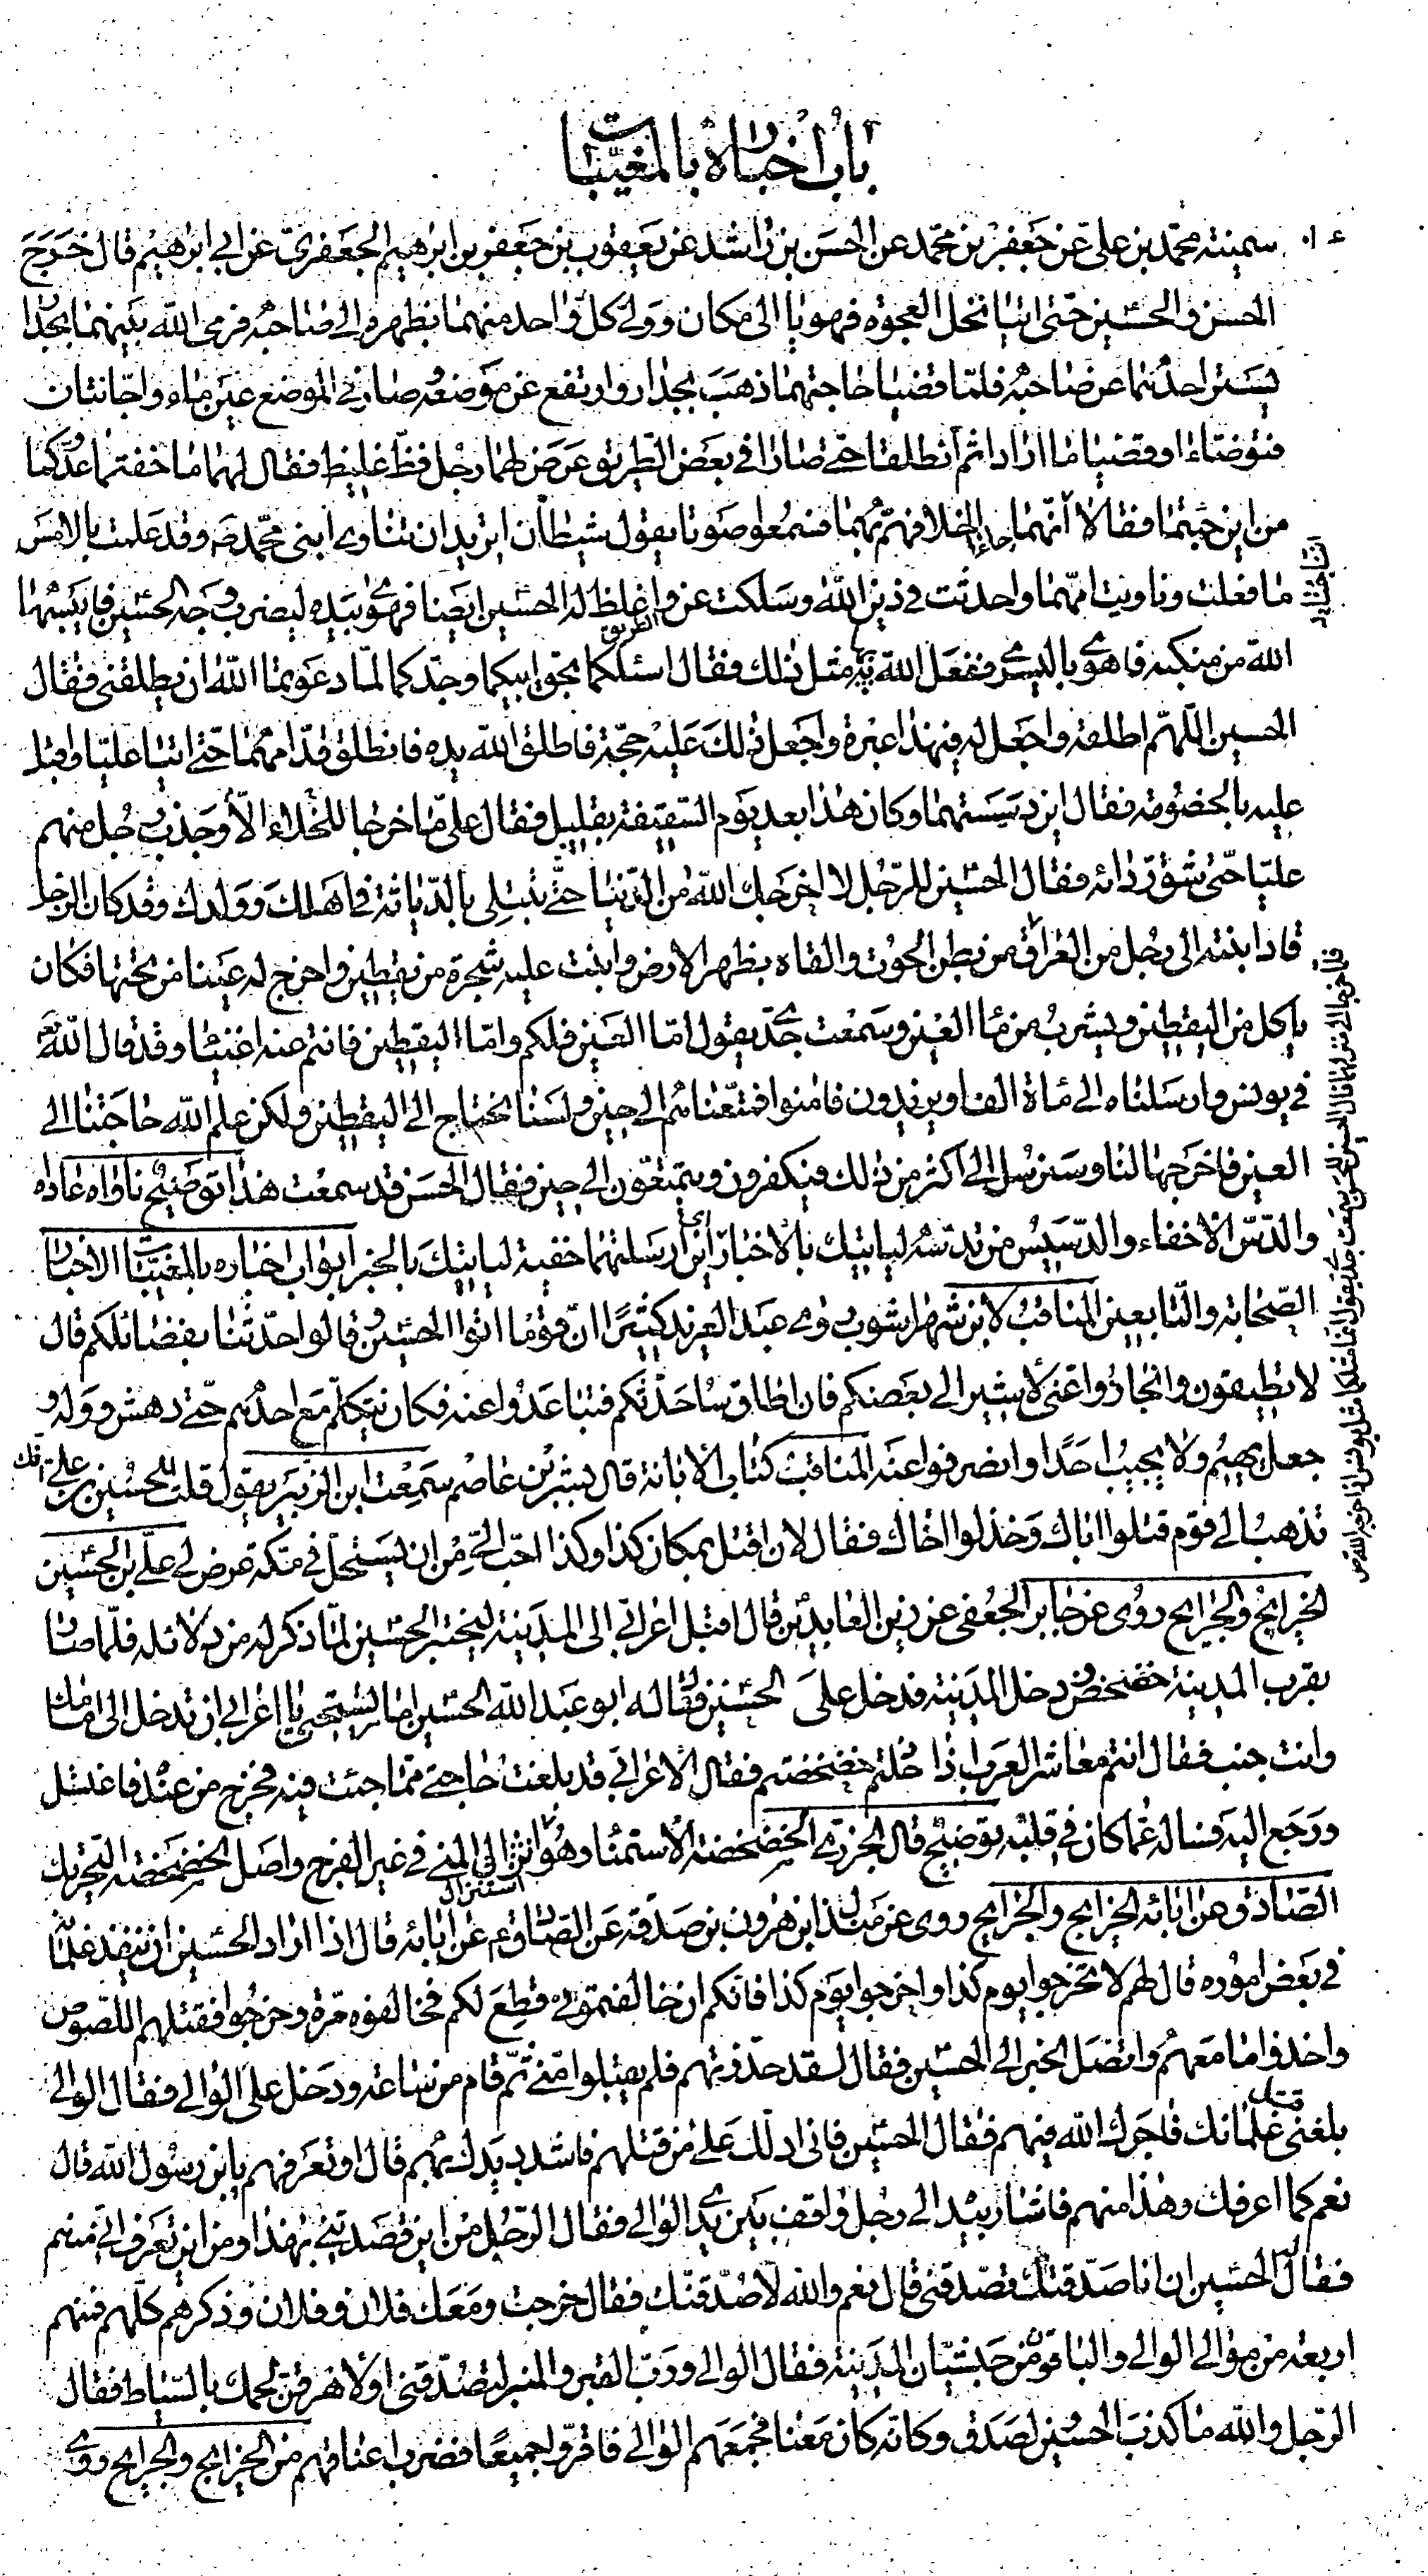 باب اخباره بالمغیبات
سمینة محمد بن علی عن جعفر بن محمد عن الحسن بن راشد عن یعقوب بن جعفر بن ابرهیم الجعفری عن ابی ابرهیم قال خرج
الحسن والحسین حتی اتیا نخل العجوة فهویا الی مکان وولی کل واحد منهما بظهره الی صاحبه فرمی الله بینهما بجدار
یستتر احدهما عن صاحبه فلما قضیا حاجتهما ذهب الجدار وارتفع عن موضعه وصار فی الموضع عین ماء واجانتان
فتوضئا وقضیا ما ارادا ثم انطلقا حتی صارا فی بعض الطریق عرض لهما رجل فظ غلیظ فقال لهما ما خفتما عدوکما
من این جئتما فقالا انهما جاءا من الخلا فهم بهما فسمعوا صوتا یقول یا شیطان اترید ان تناوی ابنی محمد ص وقد علمت بالامس
ما فعلت وناویت امهما واحدثت فی دین الله وسلکت عن الطریق واغلظ له الحسین ایضا فهوی بیده لیضرب وجه الحسین فایبسها
الله من منکبه فاهوی بالیسری ففعل الله بها مثل ذلک فقال اسئلکما بحق ابیکما وجدکما لما دعوتما الله ان یطلقنی فقال
الحسین اللهم اطلقه واجعل له فی هذا عبرة واجعل ذلک علیه حجة فاطلق الله یده فانطلق قدامهما حتی اتیا علیا واقبل
علیه بالخصومة فقال این دسستهما وکان هذا بعد یوم السقیفة بقلیل فقال علی ما خرجا الا للخلاء وجذب رجل منهم
علیا حتی شق ردائه فقال الحسین للرجل لا اخرجک الله من الدنیا حتی تبتلی بالدیاثة فی اهلک وولدک وقد کان الرجل
قاد ابنته الی رجل من العراق من بطن الحوت والقاه بظهر الارض وانبت علیه شجرة من یقطین واخرج له عینا من تحتها فکان
یاکل من الیقطین ویشرب من ماء العین وسمعت جدی یقول اما العین فلکم واما الیقطین فانتم عنه اغنیاء وقد قال الله
فی یونس وارسلناه الی مائة الف او یزیدون فامنوا فمتعناهم الی حین ولسنا نحتاج الی الیقطین ولکن علم الله حاجتنا الی
العین فاخرجها لنا وسنرسل الی اکثر من ذلک فیکفرون ویتمتعون الی حین فقال الحسن قد سمعت هذا توضیح ناواه عاداه
والدس الاخفاء والدسیس من تدسه لیاتیک بالاخبار ای این ارسلتهما خفیة لیاتیک بالخبر ابواب اخباره بالمغیبات الاخبار
الصحابة والتابعین المناقب لابن شهراشوب روی عبد العزیز بن کثیر ان قوما اتوا الحسین وقالوا حدثنا بفضائلکم قال
لا تطیقون وانحازوا عنی لاشیر الی بعضکم فان اطاق ساحدثکم فتباعدوا عنه فکان یتکلم مع احدهم حتی دهش ووله و
جعل یهیم ولا یجیب احدا وانصرفوا عنه المناقب کتاب الابانة قال بشر بن عاصم سمعت ابن الزبیر یقول قلت للحسین بن علی انک
تذهب الی قوم قتلوا اباک وخذلوا اخاک فقال لان اقتل بمکان کذا وکذا احب الی من ان یستحل فی مکة عرض لی علی بن الحسین
الخرایج والجرایح روی عن جابر الجعفی عن زین العابدین قال اقبل اعرابی الی المدینة لیختبر الحسین لما ذکر له من دلائله فلما صار
بقرب المدینة خضخض ودخل المدینة فدخل علی الحسین فقال له ابو عبد الله الحسین اما تستحیی یا اعرابی ان تدخل الی امامک
وانت جنب فقال انتم معاشر العرب اذا خلوتم خضخضتم فقال الاعرابی قد بلغت حاجتی مما جئت فیه فخرج من عنده فاغتسل
ورجع الیه فساله عما کان فی قلبه توضیح قال الجزری الخضخضة الاستمناء وهو استنزال المنی فی غیر الفرج واصل الخضخضة التحریک
الصادق عن ابائه الخرایج والجرایح روی عن مندل ابن هرون بن صدقة عن الصادق ع عن ابائه قال اذا اراد الحسین ان ینفذ غلمانه
فی بعض اموره قال لهم لا تخرجوا یوم کذا واخرجوا یوم کذا فانکم ان خالفتمونی قطع لکم فخالفوه مرة وخرجوا فقتلهم اللصوص
واخذوا ما معهم واتصل الخبر الی الحسین فقال لقد حذرتهم فلم یقبلوا منی ثم قام من ساعته ودخل علی الوالی فقال الوالی
بلغنی قتل غلمانک فاجرک الله فیهم فقال الحسین فانی ادلک علی من قتلهم فاشدد یدک بهم قال او تعرفهم یا بن رسول الله قال
نعم کما اعرفک وهذا منهم فاشار بیده الی رجل واقف بین یدی الوالی فقال الرجل من این قصدتنی بهذا ومن این تعرف انی منهم
فقال له الحسین ان انا صدقتک تصدقنی قال نعم والله لاصدقنک فقال خرجت ومعک فلان وفلان وذکرهم کلهم فمنهم
اربعة من موالی الوالی والباقون من حبشان المدینة فقال الوالی ورب القبر والمنبر لتصدقنی او لاهرقن لحمک بالسیاط فقال
الرجل والله ما کذب الحسین لصدق وکانه کان معنا فجمعهم الوالی فاقروا جمیعا فضرب اعناقهم من الخرایج والجرایح روی